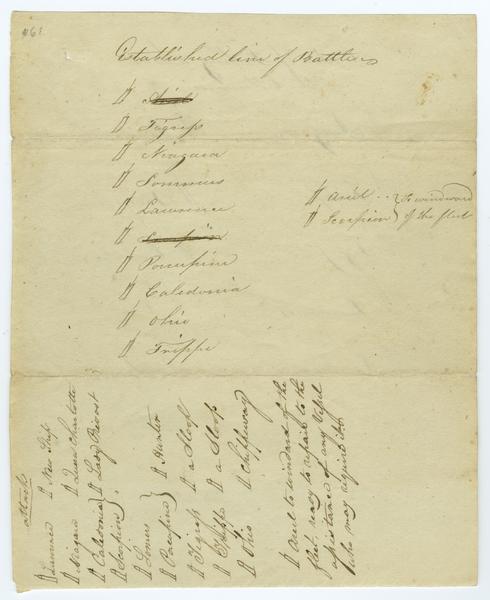 Established line of Battle
Ariel
Tigress
Niagara
Sommers
Lawrence
Scorpion
Porcupine
Caledonia
Ohio
Trippe
Ariel .. } To windward
Scorpion } of the fleet
attack
Lawrence New Ship
Niagara Queen Charlotte
Caledonia } Lady Prevost
Scorpion }
Somers }
Porcupine } Hunter
Tigress a Sloop
Trippe a Sloop
Ohio Chippeway
Ariel to windward of the
fleet ready to repair to the
assistance of any Vessel
who may require it